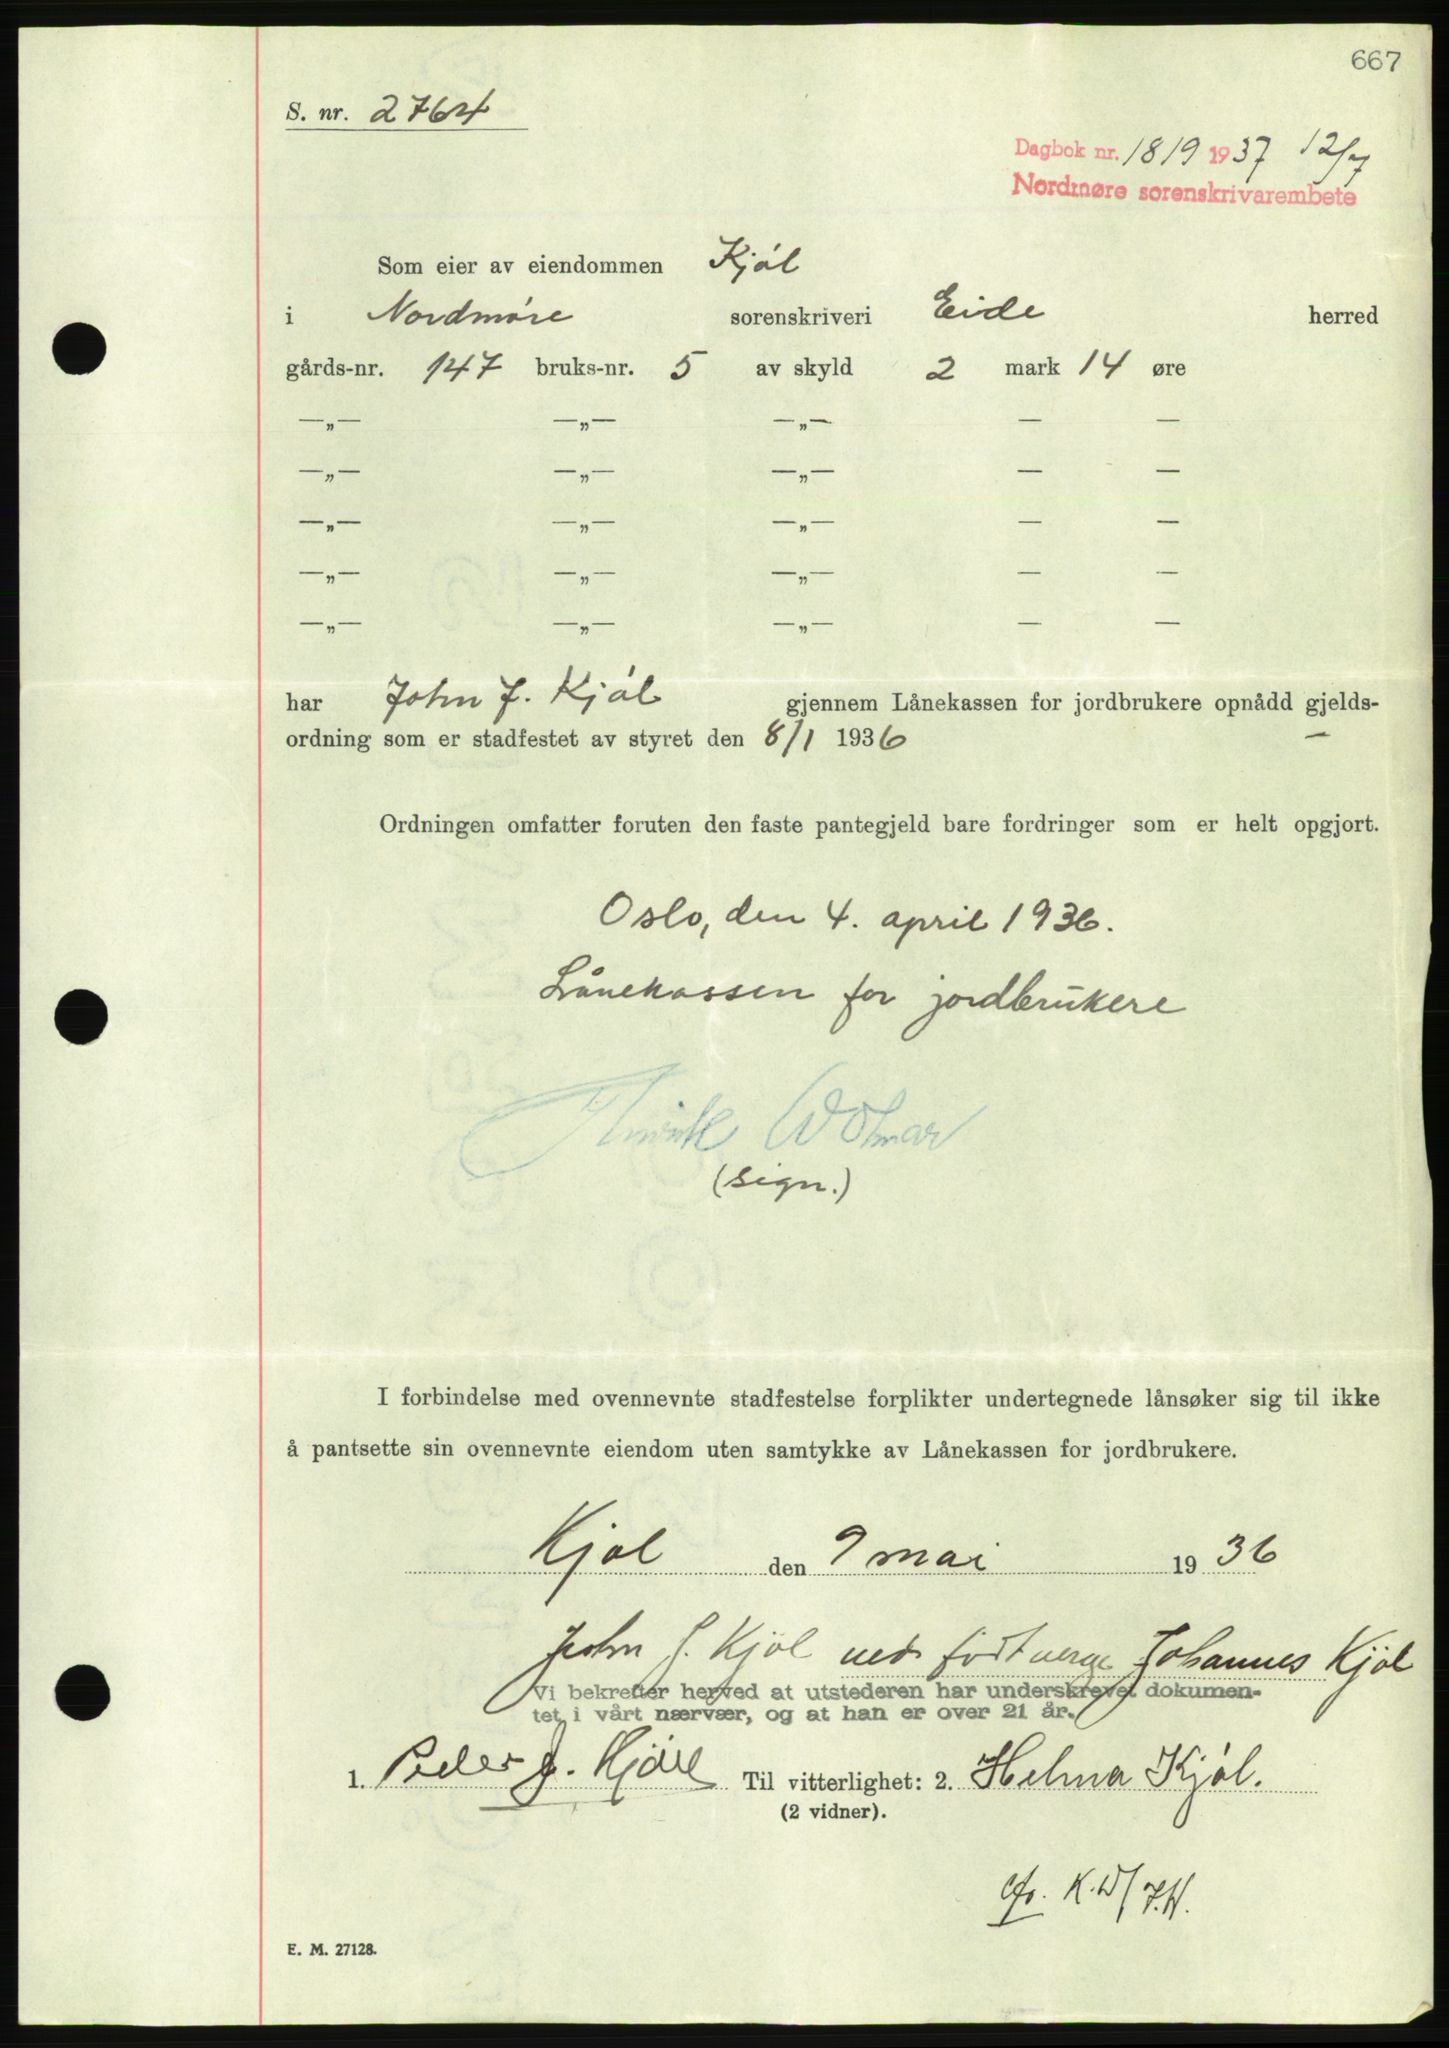 667
S. nr. 2764
Dagbok nr. 1819 1937 12/7
Nordmøre sorenskrivarembete
Som eier av eiendommen Kjøl
i Nordmøre sorenskriveri Eide herred
gårds-nr. 147 bruks-nr. 5 av skyld 2 mark 14 øre
—„— —„— —„— — —
—„— —„— —„— — —
—„— —„— —„— — —
—„— —„— —„— — —
—„— —„— —„— — —
har John J. Kjøl gjennem Lånekassen for jordbrukere opnådd gjelds-
ordning som er stadfestet av styret den 8/1 1936
Ordningen omfatter foruten den faste pantegjeld bare fordringer som er helt opgjort.
Oslo, den 4. april 1936.
Lånekassen for jordbrukere
(sign.)
I forbindelse med ovennevnte stadfestelse forplikter undertegnede lånsøker sig til ikke
å pantsette sin ovennevnte eiendom uten samtykke av Lånekassen for jordbrukere.
Kjøl den 9 mai 1936
John J. Kjøl ved født verge Johannes Kjøl
Vi bekrefter herved at utstederen har underskrevet dokumen-
tet i vårt nærvær, og at han er over 21 år.
1. Peder J. Kjøl Til vitterlighet: 2. Helma Kjøl.
(2 vidner).
K.W/J.H.
E. M. 27128.